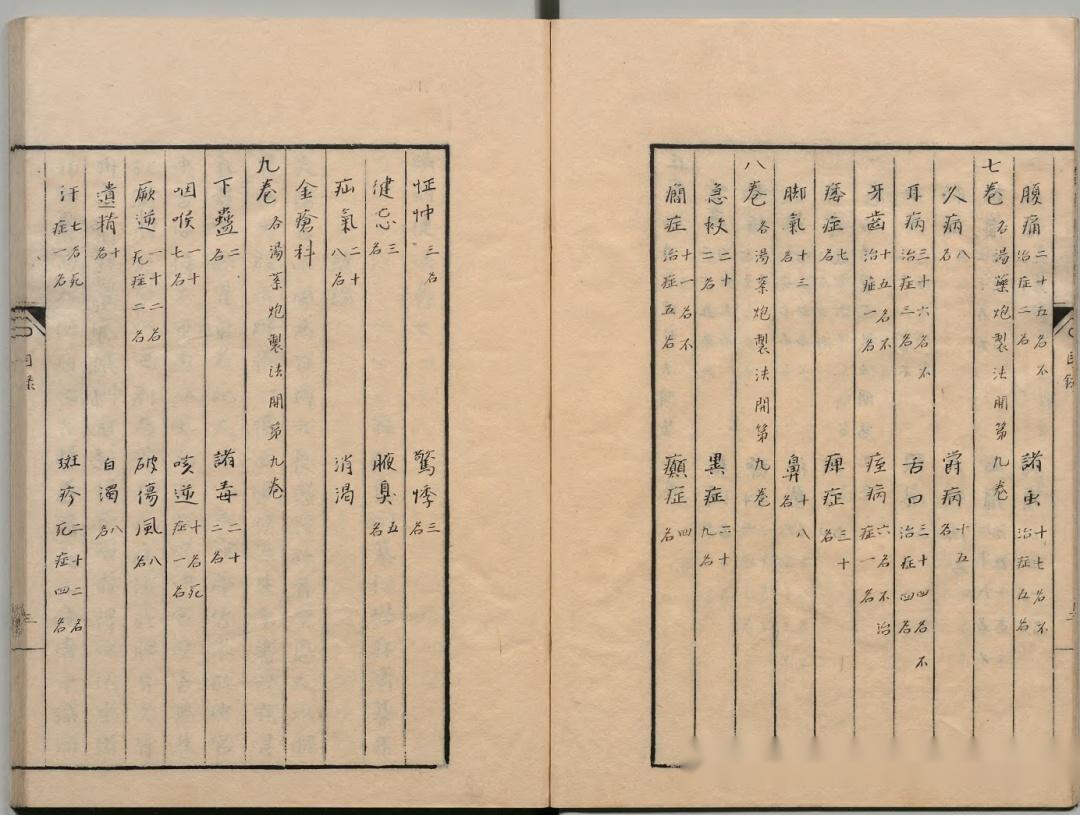 腹痛 二十五名不治症二名 諸虫 十七名不治症五名
七卷 各湯藥炮製法開第九卷
火病 八名 爵病 十五名
耳病 三十六名不治症三名 舌口 三十四名不治症四名
牙齒 十五名不治症一名 痓病 六名不治症一名
痿症 七名 痺症 三十名
脚氣 十三名 鼻 十八名
八卷 各湯藥炮製法開第九卷
急救 二十二名 異症 六十九名
癎症 十一名不治症五名 癲症 四名
怔忡 三名 驚悸 三名
健忘 三名 腋臭 五名
疝氣 二十八名 消渴
金瘡科
九卷 各湯藥炮製法開第九卷
下蠱 二名 諸毒 二十二名
咽喉 一十七名 咳逆 十名死症一名
厥逆 一十二名死症二名 破傷風 八名
遺精 十名 白濁 八名
汗症 七名死症一名 斑疹 二十二名死症四名
目錄